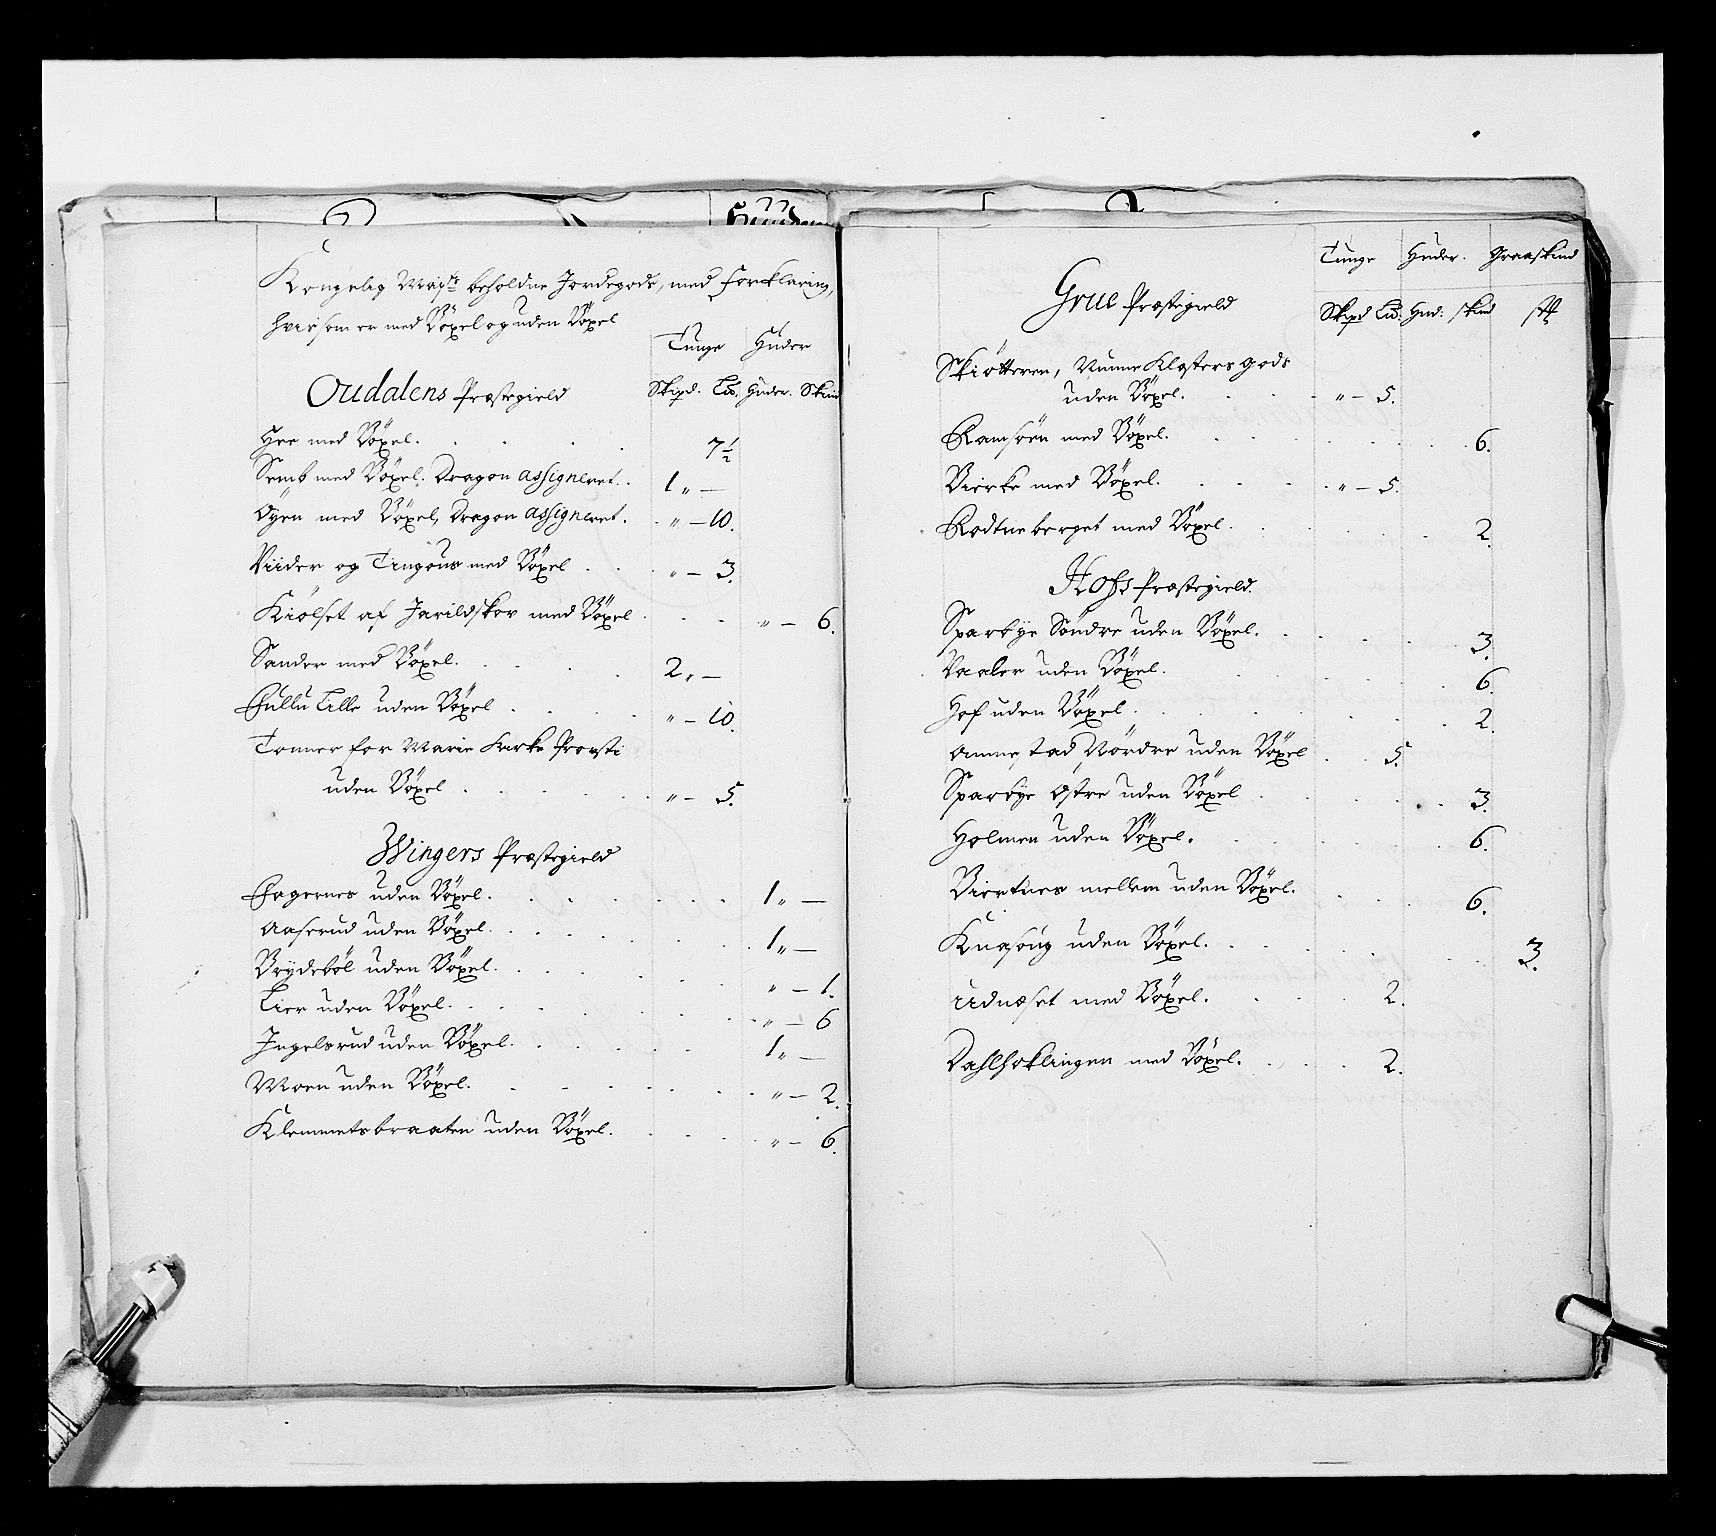 Kongelig Mayts beholdne Jordegods, med forklaring,
hvis som er med Böxel og uden Böxel
Tunge Huder
Oudalens Præstegield Skipd: Lw. Huder. Skind
Hee med Böxel. 7½
Semb med Böxel. Dragon assigneret. 1 „ —
Öyen med Böxel, Dragon assigneret. „ — 10.
Viider og Tingöus med Böxel „ — 3.
Kiölset af Jarildskov med Böxel „ — 6.
Sander med Böxel. 2 „ —
Hullu Lille uden Böxel „ — 10.
Tomer for Marie Kirke Provsti
uden Böxel „ — 5.
Wingers Præstegield
Hagernes uden Böxel. 1 „ —
Aaserud uden Böxel. 1 „ —
Brydeböl uden Böxel. „ — 1.
Lier uden Böxel. „ — 6
Ingelsrud uden Böxel. 1 „ —
Moen uden Böxel. „ — 2.
Klemmetsbraaten uden Böxel. „ — 6.
Tunge Huder. Graaskind
Grue Præstegield Skipd Lw: Hud: skind
Skiötteren, Nunne Klosters gods
uden Böxel. „ — 5.
Ramsöen med Böxel. 6.
Bierke med Böxel. „ — 5.
Rodtneberget med Böxel. 2.
Hofs Præstegield.
Sparbye Söndre uden Böxel. 3.
Vaaler uden Böxel. 6.
Hof uden Böxel. 2.
Annestad Nördre uden Böxel 5.
Sparbye Östre uden Böxel 3.
Holmen uden Böxel. 6.
Biertnes mellem uden Böxel. 6.
Knasöug uden Böxel. 3.
Udnæset med Böxel. 2.
Dahlhoklingen med Böxel. 2.